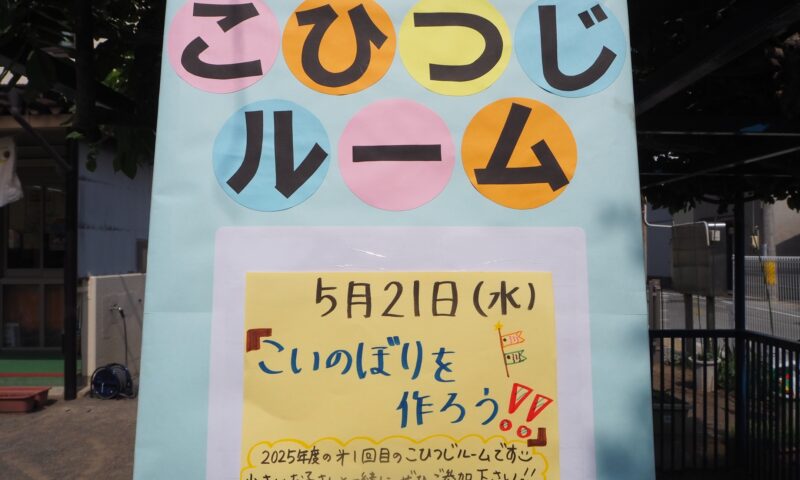 こひつじ
ルーム
5月21日(水)
「こいのぼりを
作ろう!!」
2025年度の第1回目のこひつじルームです
小さいお子さんと一緒にぜひご参加下さい!!